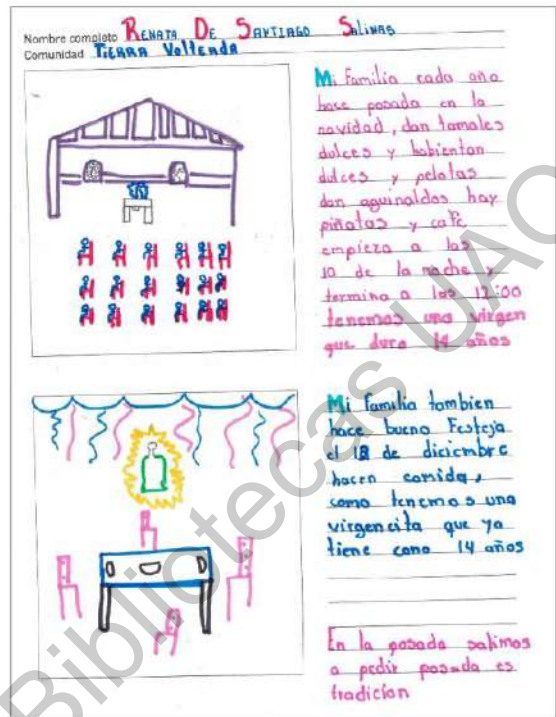 Nombre completo RENATA DE SANTIAGO SALINAS
Comunidad TIERRA VolTEADA
Mi Familia cada año
hase posada en la
navidad, dan tamales
dulces y habientan
dulces y pelotas
dan aguinaldos hay
piñatas y café
empieza a las
10 de la noche y
termina a las 12:00
tenemos una virgen
que dura 14 años
Mi familia tambien
hace bueno Festeja
el 18 de diciembre
hacen comida,
como tenemos una
virgencita que ya
tiene como 14 años
En la posada salimos
a pedir posada es
tradicion
Bibliotecas UAQ